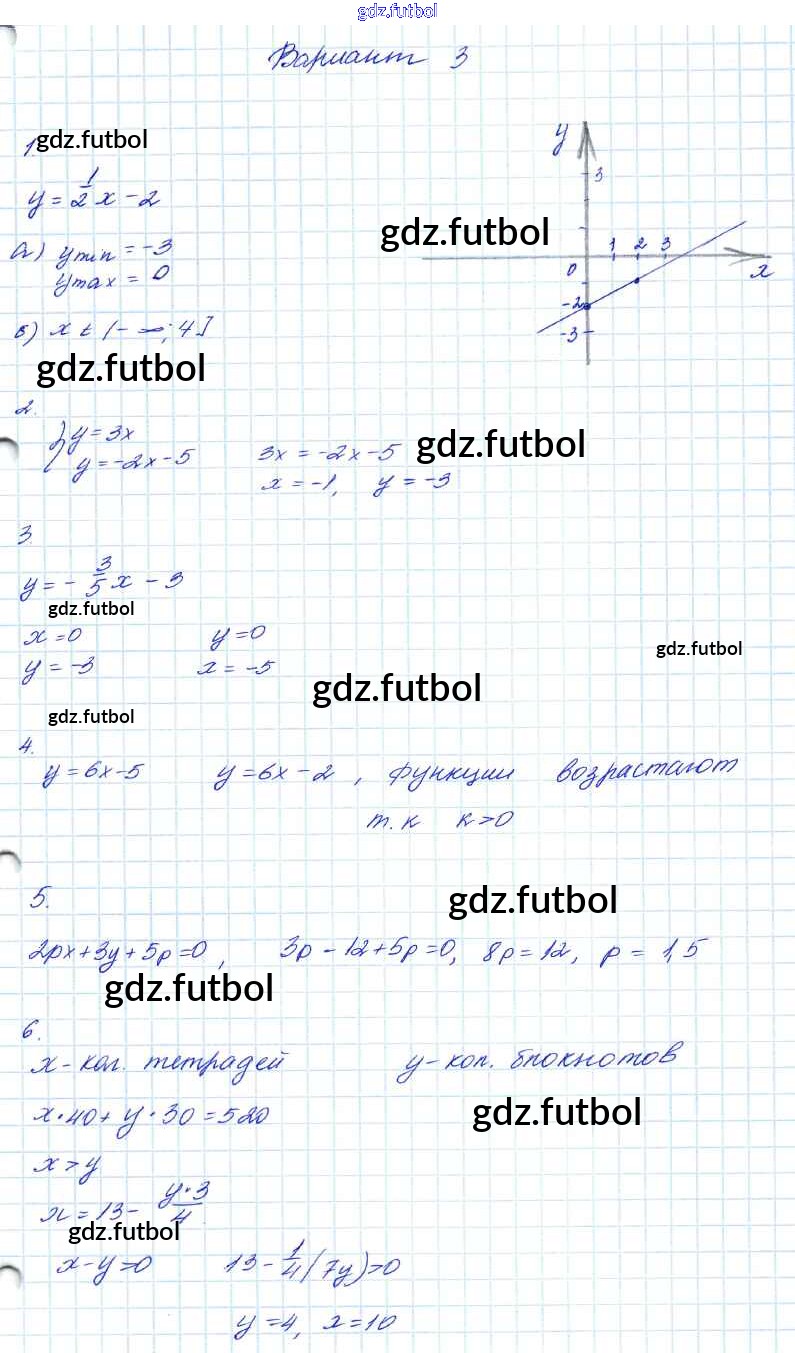 gdz.futbol
Вариант 3
1. gdz.futbol
y = 1/2 x - 2
а) y min = -3
y max = 0
б) x ∈ (-∞; 4]
gdz.futbol
y
3
gdz.futbol
1 2 3
0 x
-2
-3
2.
{ y = 3x
y = -2x - 5
3x = -2x - 5 gdz.futbol
x = -1, y = -3
3
y = - 3/5 x - 3
gdz.futbol
x = 0 y = 0
gdz.futbol
y = -3 x = -5
gdz.futbol
gdz.futbol
4.
y = 6x - 5 y = 6x - 2 , функции возрастают
т.к к > 0
5.
gdz.futbol
2px + 3y + 5p = 0, 3p - 12 + 5p = 0, 8p = 12, p = 1,5
gdz.futbol
6.
x - кол. тетрадей y - кол. блокнотов
x·40 + y·30 = 520
gdz.futbol
x > y
x = 13 - y·3/4
gdz.futbol
x - y > 0 13 - 1/4 (7y) > 0
y = 4, x = 10